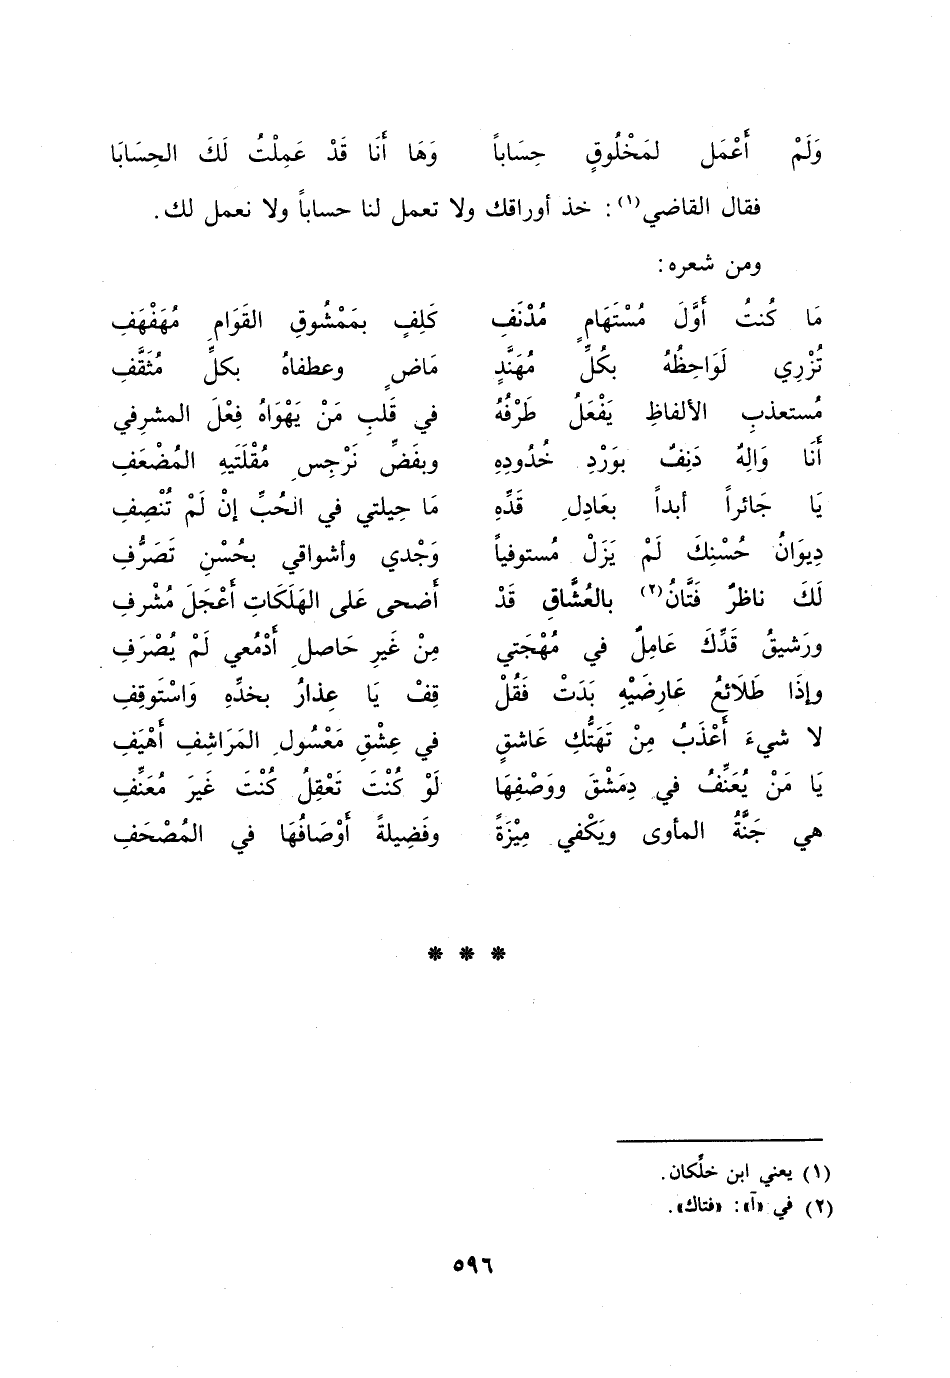 وَلَمْ أَعْمَل لمَخْلُوقٍ حِسَاباً وَهَا أَنَا قَدْ عَمِلْتُ لَكَ الحِسَابَا
فقال القاضي(١): خذ أوراقك ولا تعمل لنا حساباً ولا نعمل لك.
ومن شعره:
مَا كُنتُ أَوَّلَ مُسْتَهَامٍ مُدْنَفِ كَلِفٍ بمَمْشُوقِ القَوَامِ مُهَفْهَفِ
تُزْرِي لَوَاحِظُهُ بكُلِّ مُهَنَّدٍ مَاضٍ وعطفاهُ بكلِّ مُثَقَّفِ
مُستعذبِ الألفاظِ يَفْعَلُ طَرْفُهُ في قَلبِ مَنْ يَهْوَاهُ فِعْلَ المشرفي
أَنَا وَالِهٌ دَنِفٌ بوَرْدِ خُدُودِهِ وبفَضِّ نَرْجِسِ مُقْلَتَيهِ المُضْعَفِ
يَا جَائراً أبداً بعَادِلِ قَدِّهِ مَا حِيلتي في الحُبِّ إنْ لَمْ تُنْصِفِ
دِيوَانُ حُسْنِكَ لَمْ يَزَلْ مُستوفياً وَجْدي وأشواقي بحُسْنِ تَصَرُّفِ
لَكَ ناظرٌ فَتَّانُ(٢) بالعُشَّاقِ قَدْ أضحى عَلى الهَلَكَاتِ أعْجَلَ مُشْرفِ
ورَشيقُ قَدِّكَ عَامِلٌ في مُهْجَتي مِنْ غَيرِ حَاصلِ أدْمُعي لَمْ يُصْرَفِ
وإذَا طَلَائعُ عَارِضَيْهِ بَدَتْ فَقُلْ قِفْ يَا عِذارُ بخدِّهِ وَاسْتَوقِفِ
لا شيءَ أَعْذَبُ مِنْ تَهَتُّكِ عَاشقٍ في عِشْقِ مَعْسُولِ المَرَاشِفِ أهْيَفِ
يَا مَنْ يُعَنِّفُ في دِمَشْقَ ووَصْفِهَا لَوْ كُنْتَ تَعْقِلُ كُنْتَ غَيرَ مُعَنِّفِ
هي جَنَّةُ المأوى ويَكْفي مِيْزَةً وفَضِيلةً أوْصَافُهَا في المُصْحَفِ
* * *
(١) يعني ابن خلِّكان.
(٢) في «آ»: «فتاك».
٥٩٦